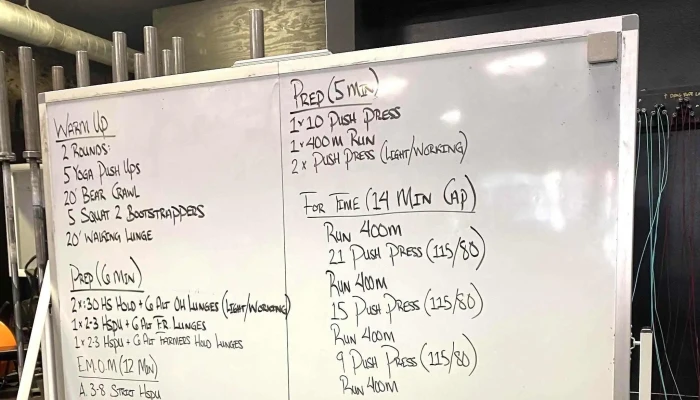 WARM UP
2 ROUNDS:
5 YOGA PUSH UPS
20' BEAR CRAWL
5 SQUAT 2 BOOTSTRAPPERS
20' WALKING LUNGE
PREP (6 MIN)
2x :30 HS HOLD + 6 ALT OH LUNGES (LIGHT/WORKING)
1x 2-3 HSPU + 6 ALT FR LUNGES
1x 2-3 HSPU + 6 ALT FARMERS HOLD LUNGES
E.M.O.M (12 MIN)
A. 3-8 STRICT HSPU
PREP (5 MIN)
1x10 PUSH PRESS
1x400M RUN
2x PUSH PRESS (LIGHT/WORKING)
FOR TIME (14 MIN CAP)
RUN 400M
21 PUSH PRESS (115/80)
RUN 400M
15 PUSH PRESS (115/80)
RUN 400M
9 PUSH PRESS (115/80)
RUN 400M